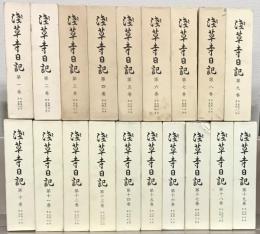 淺草寺日記 第一巻
淺草寺日記 第二巻
淺草寺日記 第三巻
淺草寺日記 第四巻
淺草寺日記 第五巻
淺草寺日記 第六巻
淺草寺日記 第七巻
淺草寺日記 第八巻
淺草寺日記 第九巻
淺草寺日記 第十巻
淺草寺日記 第十一巻
淺草寺日記 第十二巻
淺草寺日記 第十三巻
淺草寺日記 第十四巻
淺草寺日記 第十五巻
淺草寺日記 第十六巻
淺草寺日記 第十七巻
淺草寺日記 第十八巻
淺草寺日記 第十九巻